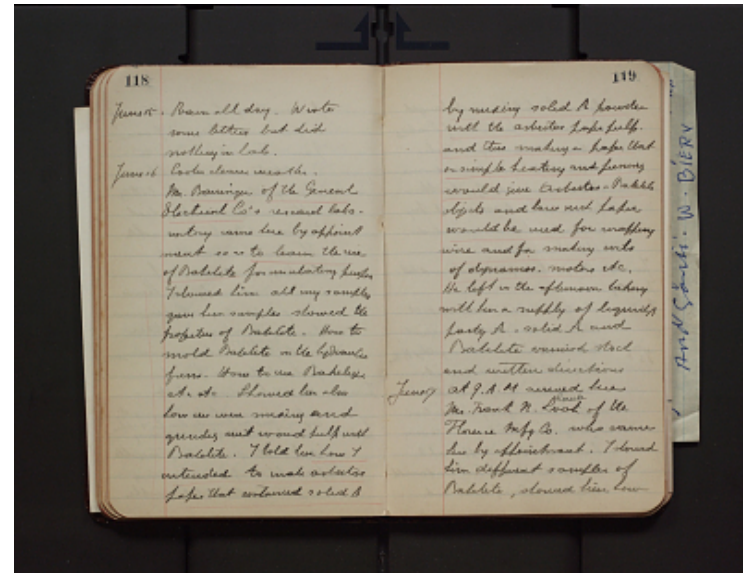 118
June 15. Rain all day. Wrote
some letters but did
nothing in lab.
June 16 Cooler clearer weather.
Mr. Barringer of the General
Electrical Co's research labo-
ratory came here by appoint
ment so as to learn the use
of Bakelite for insulating purposes
I showed him all my samples
gave him samples showed the
properties of Bakelite. How to
mold Bakelite in the hydraulic
press. How to use
etc. etc. Showed him also
how we were mixing and
grinding wood pulp with
Bakelite. I told him how I
intended to make asbestos
paper that contained solid A
119
by mixing solid A powder
with the asbestos paper pulp.
and thus making a paper that
on simple heating and pressing
would give Asbestos-Bakelite
objects and how such paper
would be used for wrapping
wire and for making
of dynamos. motors etc.
He left in the afternoon taking
with him a supply of liquid A
pasty A. solid A and
Bakelite varnish stock
and written directions
June 17 at 9 A.M arrived here
Mr. Frank N. Look of the
Florence Mfg Co. who came
here by appointment. I showed
him different samples of
Bakelite, showed him how
W. BIERY